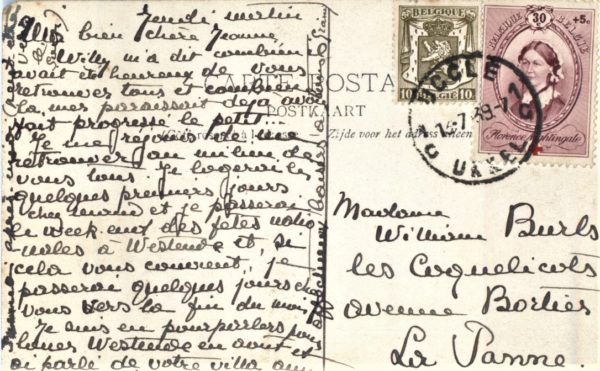 Jeudi matin
Ma bien chère Jeanne,
Willy m'a dit combien il
avait été heureux de vous
retrouver tous et combien
la mer paraissait déjà avoir
fait progresser le petit...
Je me réjouis de me
retrouver au milieu de
vous tous. Je logerai les
quelques premiers jours
chez maman et je passerai
le week end des fêtes natio-
nales à Westende et, si
cela vous convient, je
passerai quelques jours chez
vous vers la fin du mois.
Je suis en pourparlers pour
louer Westende en août et
ai parlé de votre villa aux
CARTE POSTA
POSTKAART
Côté réservé à l'adresse
Zijde voor het adres alleen
BELGIQUE
10
10
BELGIË
BELGIQUE
BELGIE
30
+5c
Florence Nightingale
UCCLE 1
14-7 39
UKKEL 1
Madame
William Burls
les Coquelicots
avenue Bortier
La Panne.